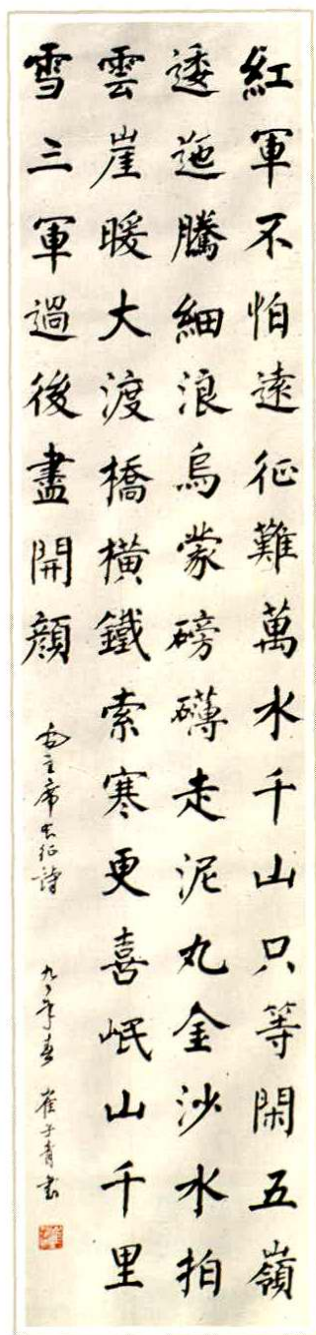 紅軍不怕遠征難萬水千山只等閑五嶺
逶迤騰細浪烏蒙磅礴走泥丸金沙水拍
雲崖暖大渡橋橫鐵索寒更喜岷山千里
雪三軍過後盡開顏
毛主席長征詩 年春 崔子青書